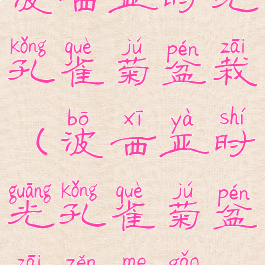 波西亚时光
kǒng què jú pén zāi
孔雀菊盆栽
bō xī yà shí
（波西亚时
guāng kǒng què jú pén
光孔雀菊盆
zāi zěn me gǎo